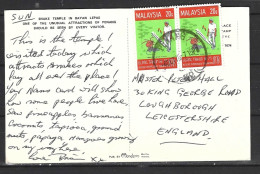 SUN
SNAKE TEMPLE IN BAYAN LEPAS
ONE OF THE UNUSUAL ATTRACTIONS IN PENANG
SHOULD BE SEEN BY EVERY VISITOR.
This is the temple I
visited today which
attracts snakes which
lay all over the place!
Nans card will show
how some people live here
Saw pineapples, bananas
Coconuts, tapioca, ground
nuts, papaya, mangoes growing
on my way here
Love
MALAYSIA 20c
MALAYSIA 20c
MASTER PETER HALL
30 KING GEORGE ROAD
LOUGHBOROUGH
LEICESTERSHIRE
ENGLAND